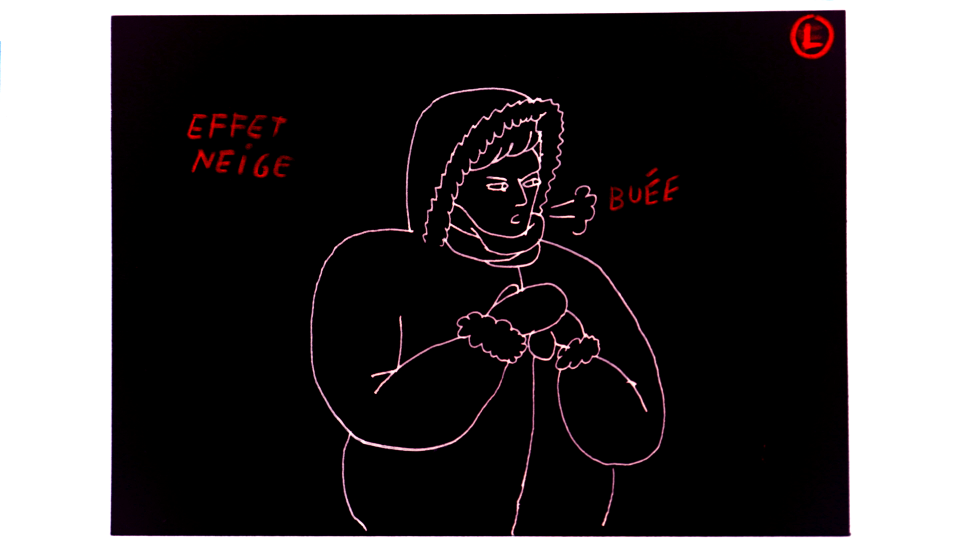 L
EFFET
NEIGE
BUÉE